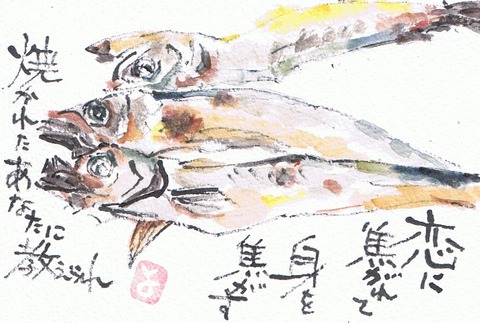 恋に
焦がれて
身を
焦がす
焼かれたあなたに教えられ